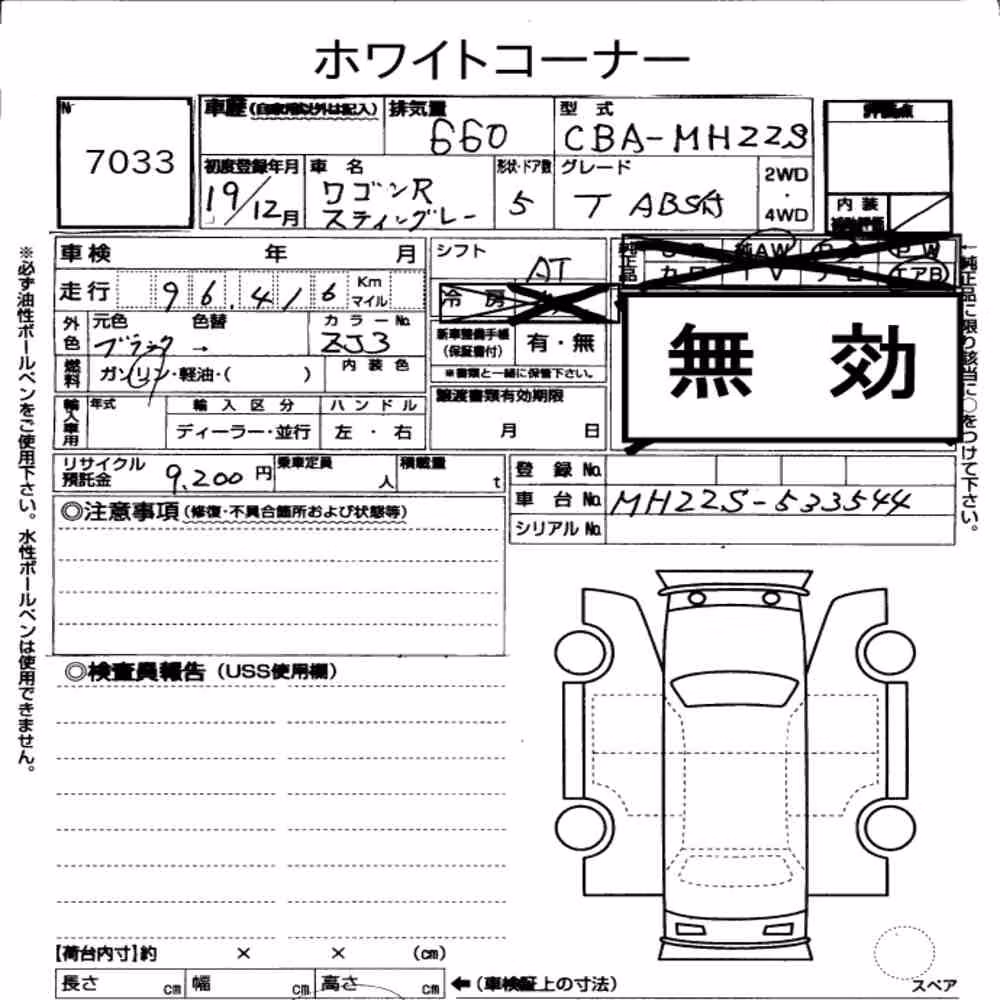 ホワイトコーナー
№
7033
車歴(自家用以外は記入)
排気量
660
型式
CBA-MH22S
評価点
初度登録年月
19/12月
車名
ワゴンR
スティングレー
形状・ドア数
5
グレード
T ABS付
2WD
・
4WD
内装
補助評価
車検 年 月
シフト
AT
純正品
純AW
PW
TV
エアB
走行 96,416 Km マイル
冷房
外色
元色 色替
ブラック →
カラーNo.
ZJ3
新車整備手帳
(保証書付)
有・無
※書類と一緒に保管下さい。
無効
燃料
ガソリン・軽油・( )
内装色
輸入車用
年式
輸入区分
ディーラー・並行
ハンドル
左・右
譲渡書類有効期限
月 日
リサイクル
預託金
9,200円
乗車定員
人
積載量
t
登録No.
車台No. MH22S-533544
シリアルNo.
◎注意事項(修復・不具合箇所および状態等)
◎検査員報告(USS使用欄)
【荷台内寸】約 × × (cm)
長さ cm 幅 cm 高さ cm ←(車検証上の寸法)
スペア
※必ず油性ボールペンをご使用下さい。水性ボールペンは使用できません。
←純正品に限り該当に○をつけて下さい。